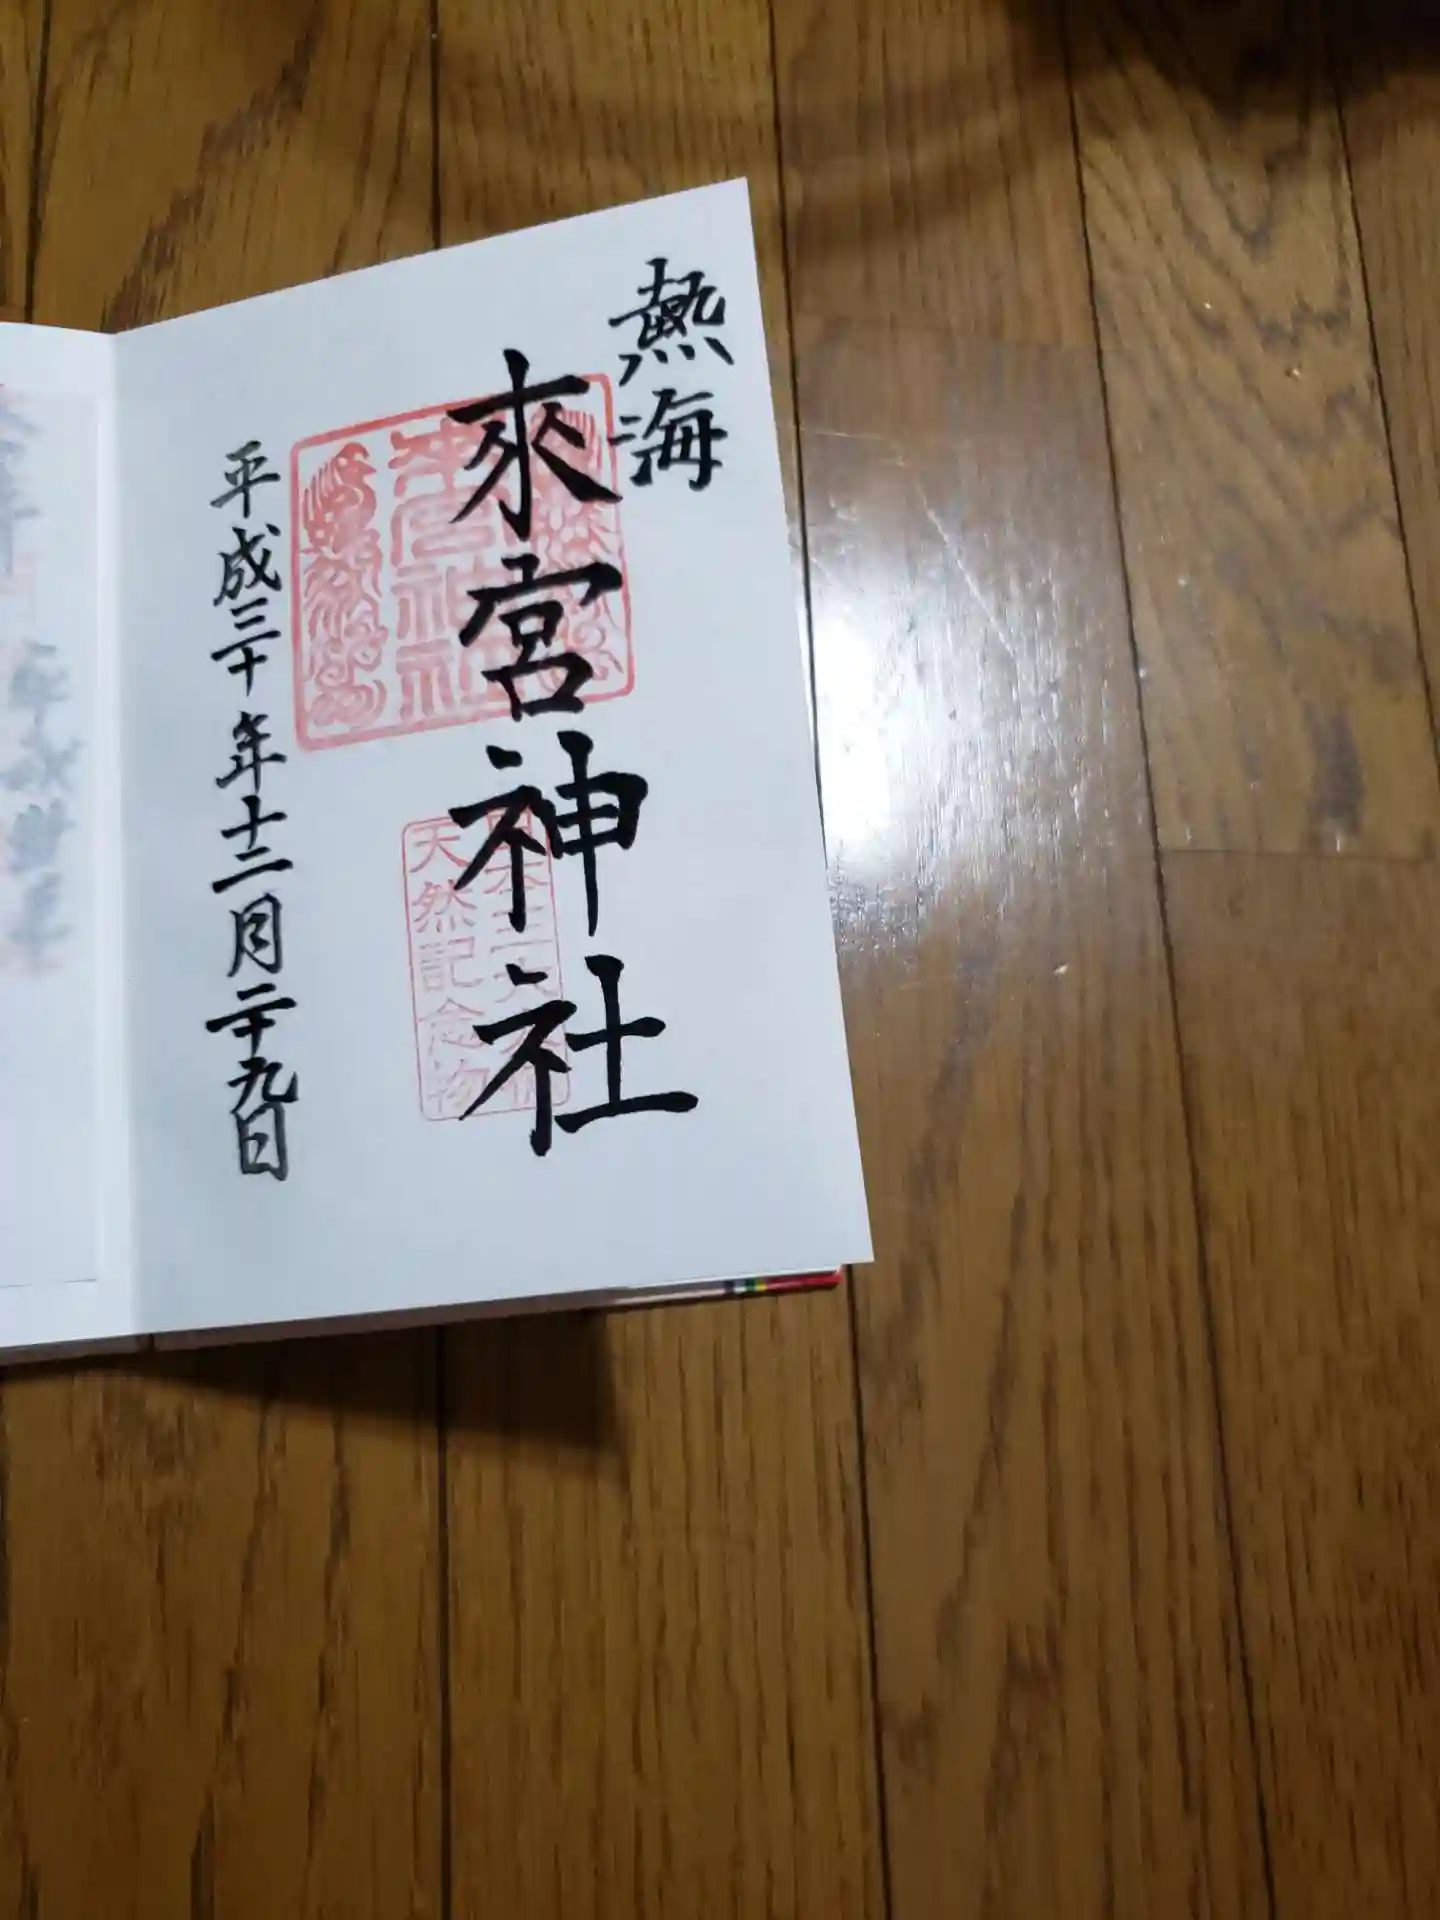 熱海
來宮神社
天然記念物
平成三十年十二月二十九日